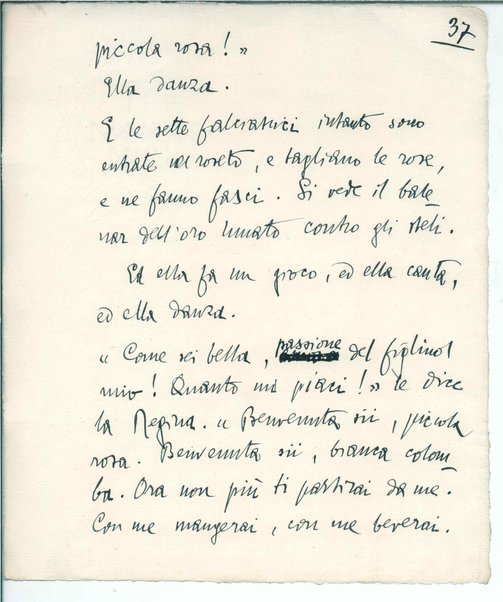 37
piccola rosa!"
Ella danza.
E le sette falciatrici intanto sono
entrate nel roseto, e tagliano le rose,
e ne fanno fasci. Si vede il bale-
nar dell'oro lunato contro gli steli.
Ed ella fa un gioco, ed ella canta,
ed ella danza.
"Come sei bella, passione del figliuol
mio! Quanto mi piaci!" le dice
la Regina. "Benvenuta sii, piccola
rosa. Benvenuta sii, bianca colom-
ba. Ora non più ti partirai da me.
Con me mangerai, con me beverai.